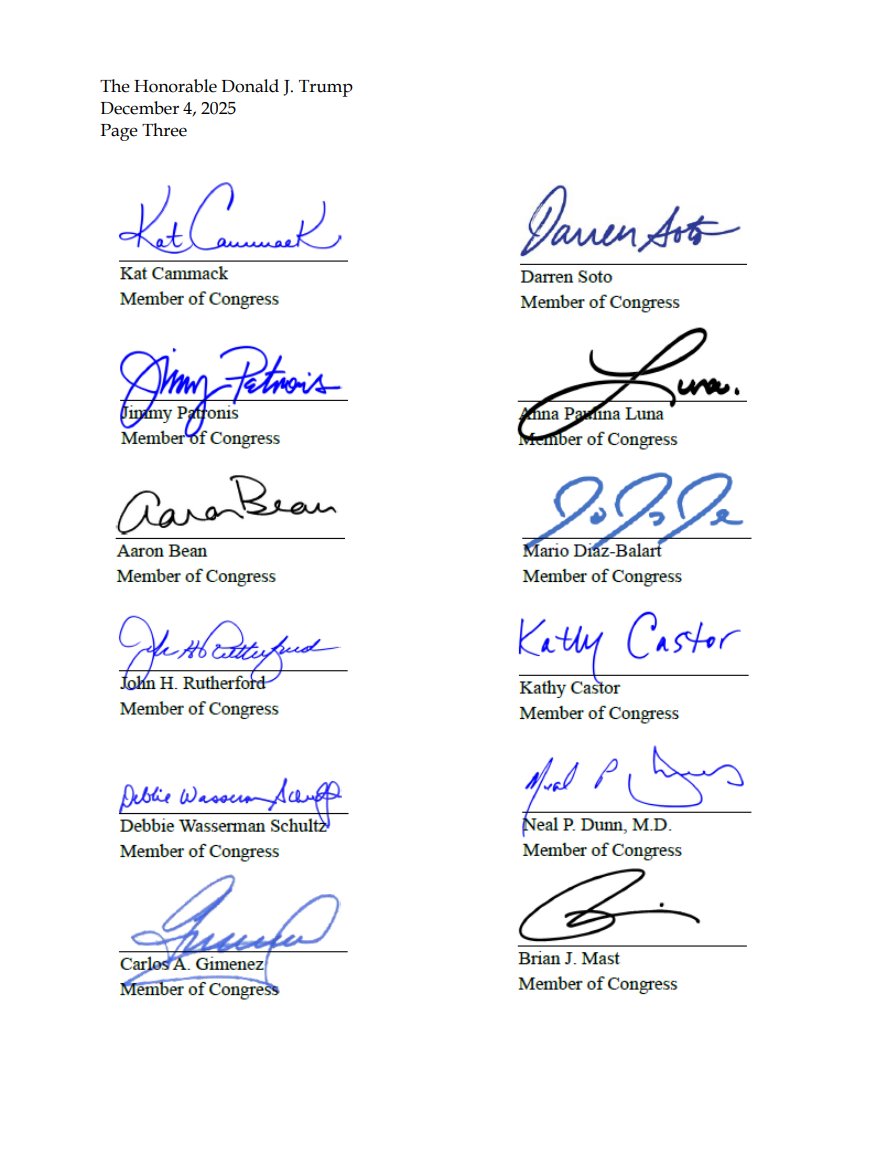 The Honorable Donald J. Trump
December 4, 2025
Page Three
Kat Cammack
Kat Cammack
Member of Congress
Darren Soto
Darren Soto
Member of Congress
Jimmy Patronis
Jimmy Patronis
Member of Congress
Luna.
Anna Paulina Luna
Member of Congress
Aaron Bean
Aaron Bean
Member of Congress
Mario Díaz-Balart
Member of Congress
John H. Rutherford
John H. Rutherford
Member of Congress
Kathy Castor
Kathy Castor
Member of Congress
Debbie Wasserman Schultz
Debbie Wasserman Schultz
Member of Congress
Neal P Dunn
Neal P. Dunn, M.D.
Member of Congress
Carlos A. Gimenez
Member of Congress
Brian J. Mast
Member of Congress